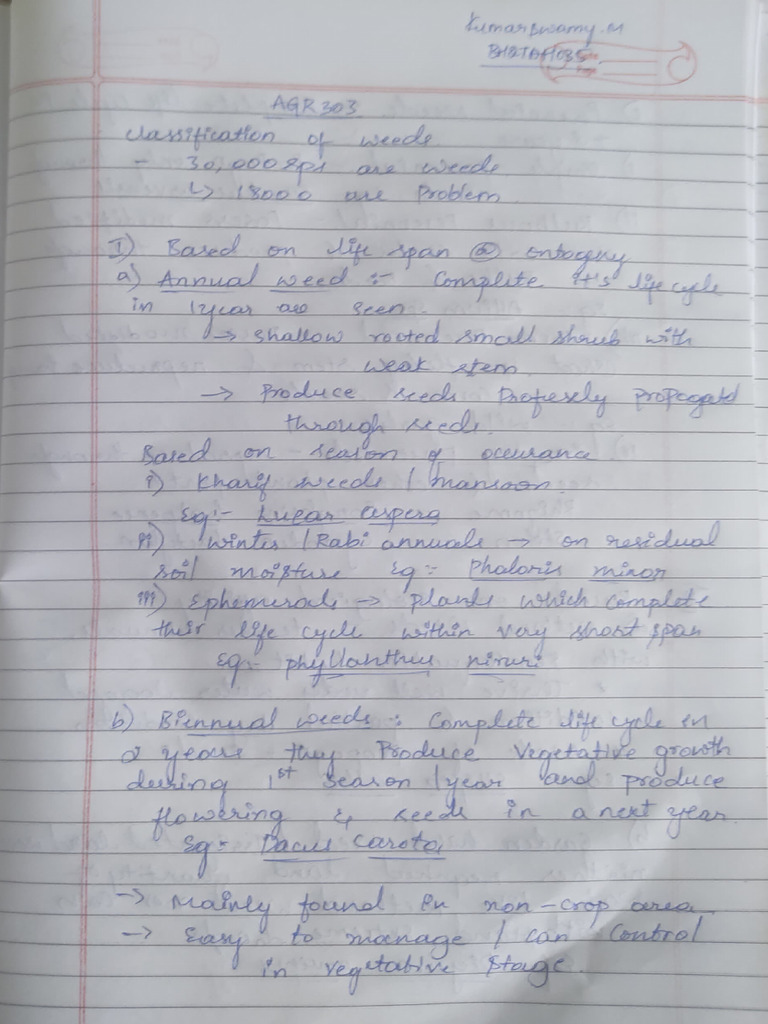 Kumarswamy.M
AGR 303
Classification of weeds
- 30,000 sps are weeds
↳ 18000 are Problem
I) Based on life span @ ontogeny
a) Annual weed :- Complete it's life cycle
in 1 year are seen.
→ shallow rooted small shrub with
weak stem
→ Produce seeds Profusely propagated
through seeds.
Based on season of occurance
i) Kharif weeds / mansoon.
Eg:- Lucas aspera
ii) winter / Rabi annuals → on residual
soil moisture Eg:- Phalaris minor
iii) Ephemerals → plants which complete
their life cycle within very short span
Eg:- phyllanthus niruri
b) Biennual weeds : Complete life cycle in
2 years they Produce Vegetative growth
during 1st season / year and produce
flowering & seeds in a next year.
Eg:- Dacus carota
→ Mainly found in non-crop area
→ Easy to manage / can control
in vegetative stage.